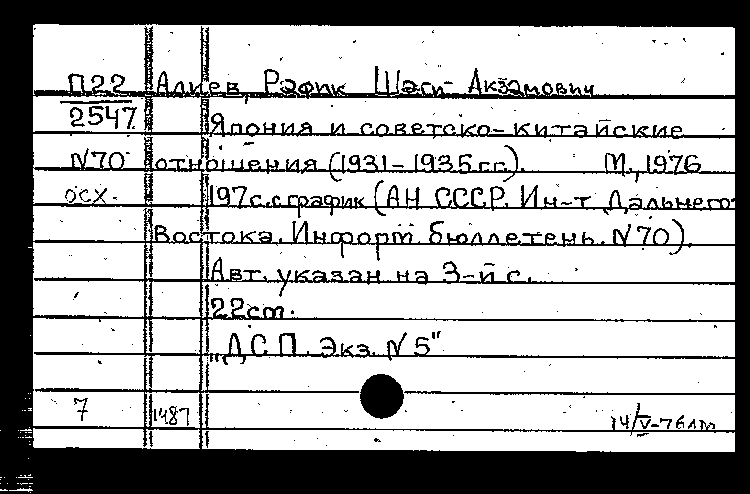 П22 Алиев, Рафик Шаги-Акзамович
2547 Япония и советско-китайские
N70 отношения (1931-1935гг.). М., 1976
осх. 197с. с график (АН СССР. Ин-т Дальнего
Востока. Информ бюллетень. N70).
Авт. указан на 3-й с.
22cm.
„ДСП. Экз. N5"
7 1487 14/V-76